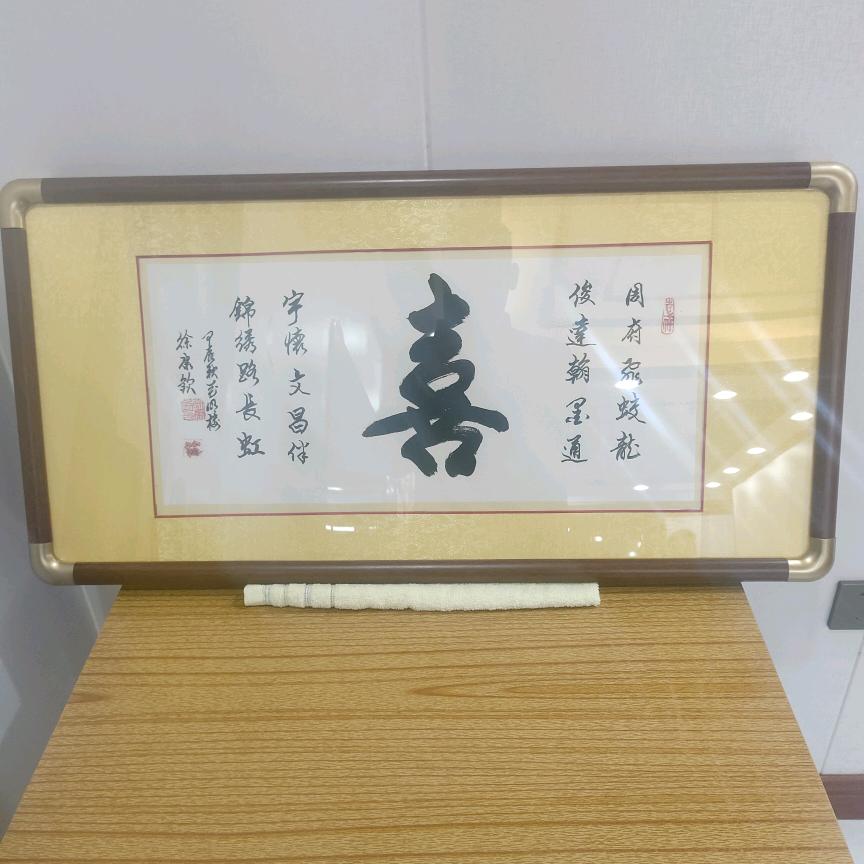 周府聚蛟龍
俊達翰墨通
喜
宇懷文昌伴
錦綉路長虹
甲辰秋
徐康欽